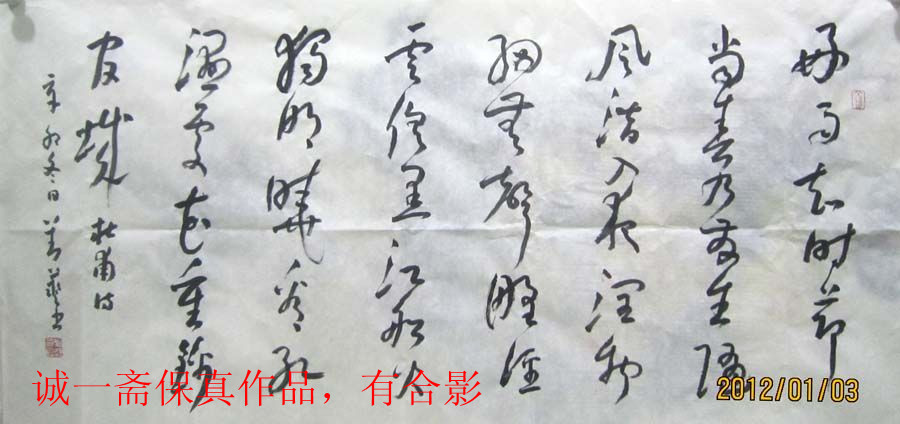 好雨知时节
當春乃發生随
风潜入夜润物
细無聲野径
雲俱黑江船火
獨明曉看红
湿處花重锦
官城 杜甫诗
辛卯冬日
诚一斋保真作品，有合影
2012/01/03